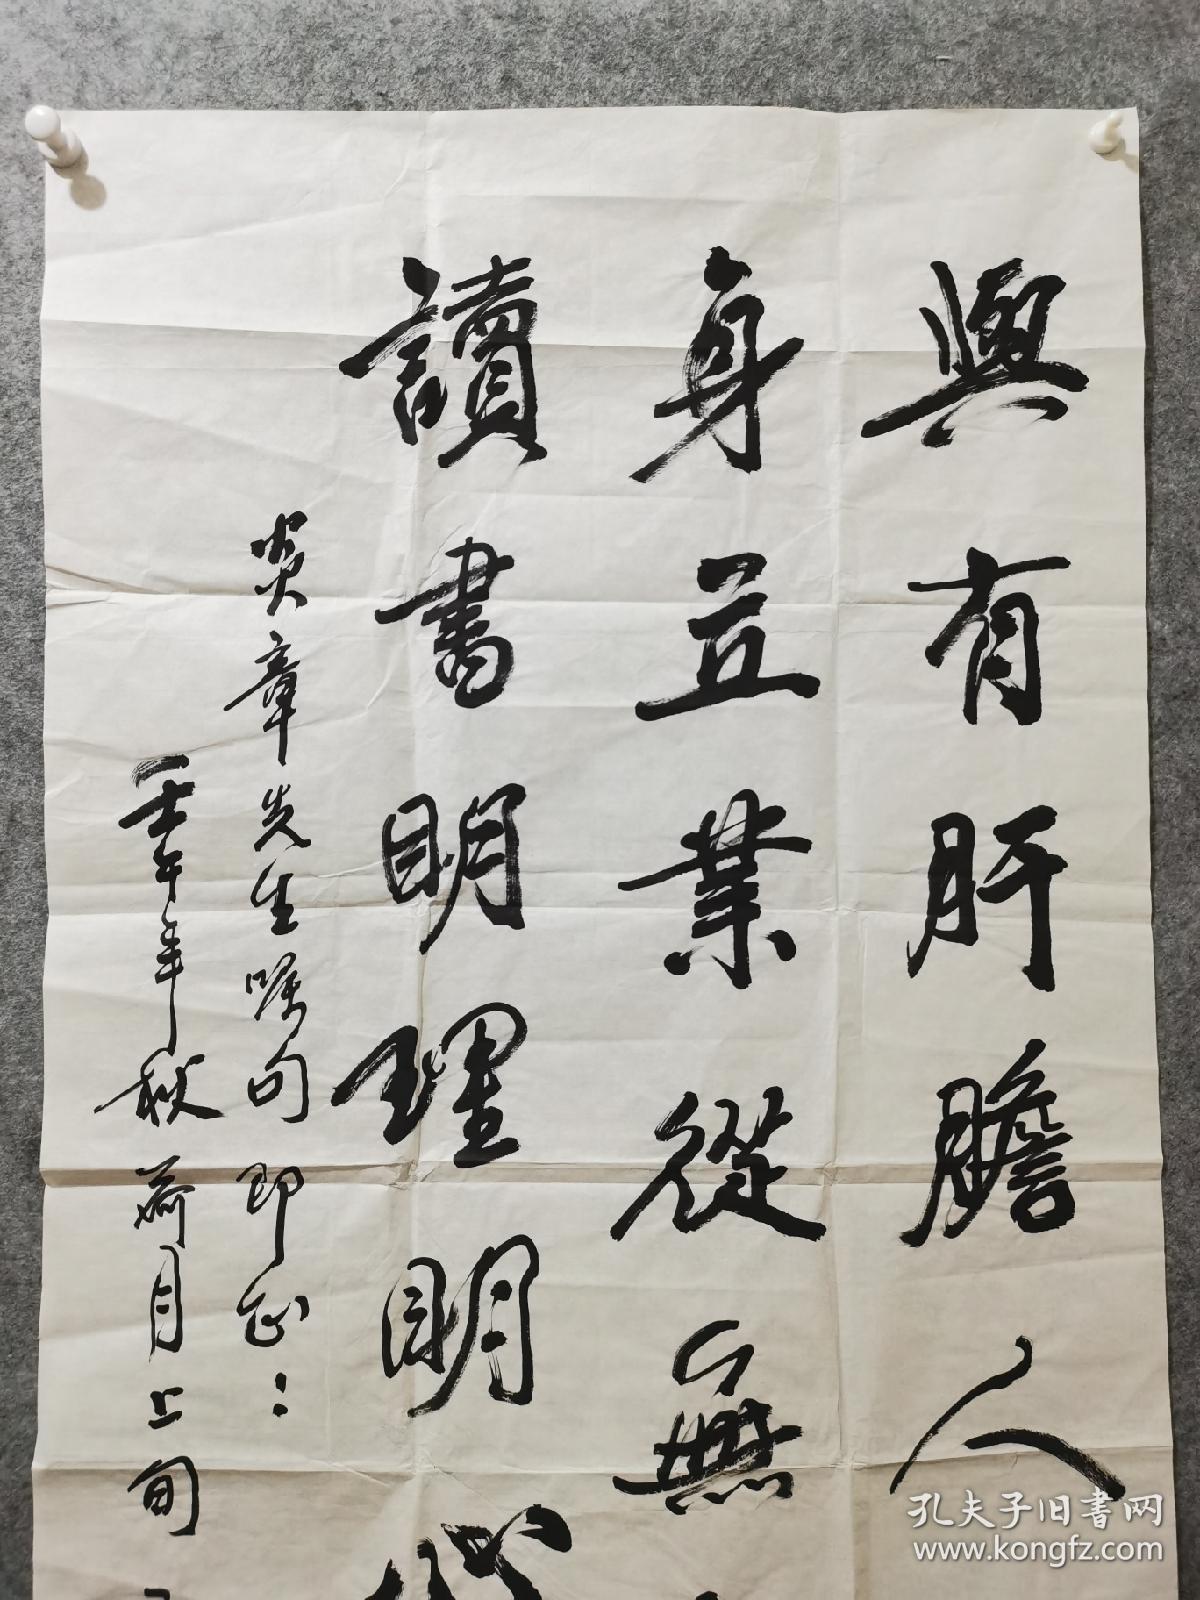 與有肝膽人
身立業從無
讀書明理明
炎章先生嘱句 即正
壬午年秋荷月上旬
孔夫子旧书网
www.kongfz.com